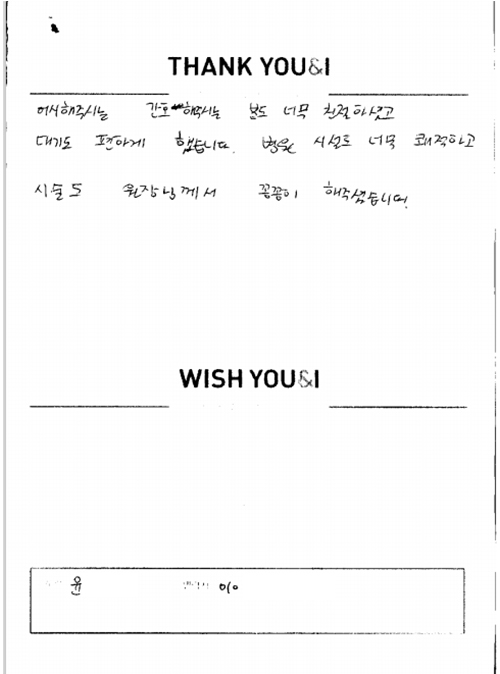 THANK YOU&I
어시해주시는 간호해주시는 분도 너무 친절하셨고
대기도 편하게 했습니다. 병원 시설도 너무 쾌적하고
시술도 원장님께서 꼼꼼이 해주셨습니다.
WISH YOU&I
윤 010